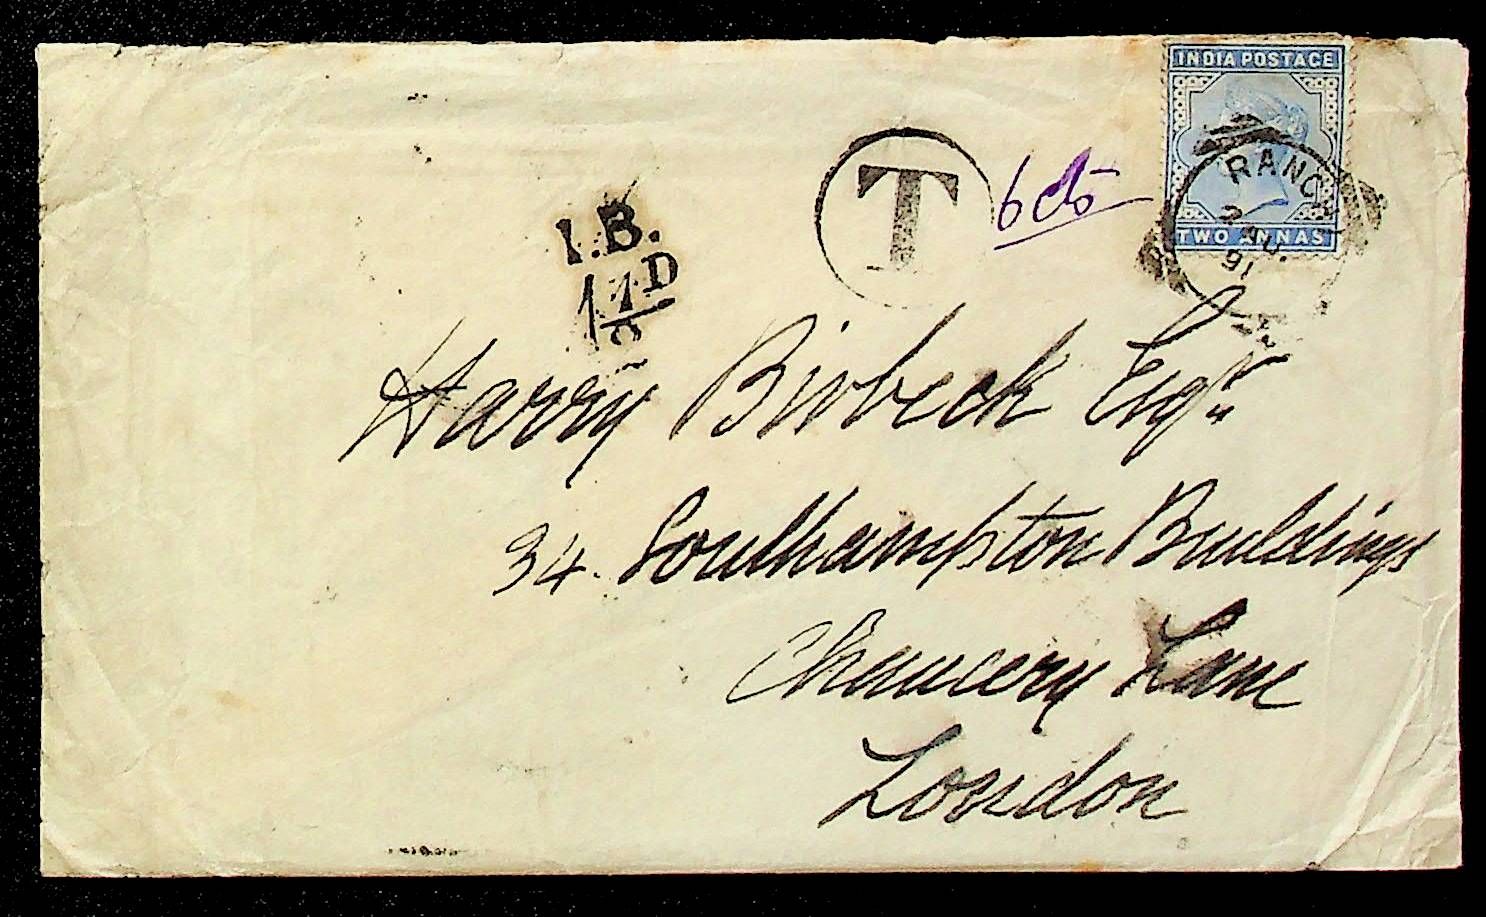 INDIA POSTAGE
TWO ANNAS
RANCHI
91
T
6 cts
I.B.
1½D
Harry Birbeck Esqr
34. Southampton Buildings
Chancery Lane
London